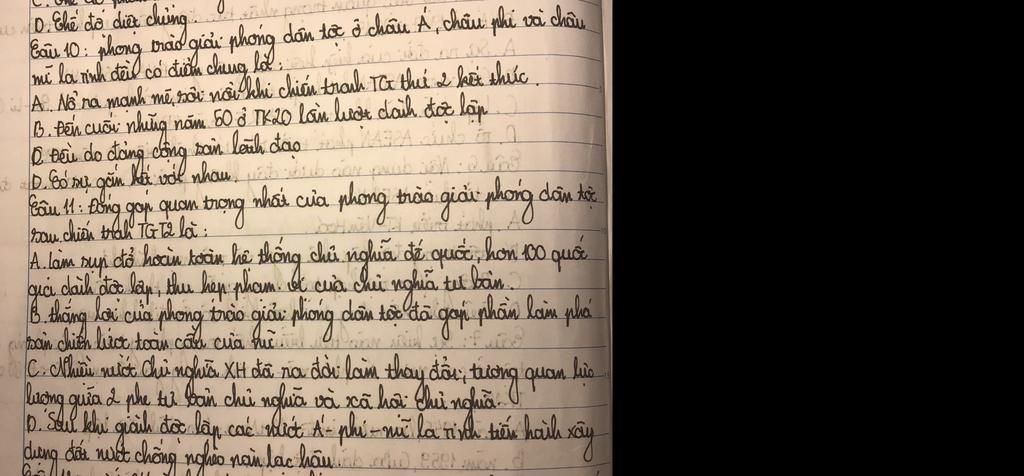 D. Chế độ diệt chủng.
Câu 10: phong trào giải phóng dân tộc ở châu Á, châu phi và châu
mĩ la tinh đều có điểm chung là:
A. Nổ ra mạnh mẽ, sôi nổi khi chiến tranh TG thứ 2 kết thúc.
B. Đến cuối những năm 50 ở TK20 lần lượt dành độc lập
C. Đều do đảng cộng sản lãnh đạo
D. Có sự gắn kết với nhau.
Câu 11: Đóng góp quan trọng nhất của phong trào giải phóng dân tộc
sau chiến tranh TGT2 là:
A. làm sụp đổ hoàn toàn hệ thống chủ nghĩa đế quốc, hơn 100 quốc
gia dành độc lập, thu hẹp phạm vi của chủ nghĩa tư bản.
B. thắng lợi của phong trào giải phóng dân tộc đã góp phần làm phá
sản chiến lược toàn cầu của mĩ.
C. Nhiều nước Chủ nghĩa XH đã ra đời làm thay đổi, tương quan lực
lượng giữa 2 phe tư bản chủ nghĩa và xã hội chủ nghĩa.
D. Sau khi giành độc lập các nước Á - phi - mĩ la tinh tiến hành xây
dựng đất nước chống nghèo nàn lạc hậu.